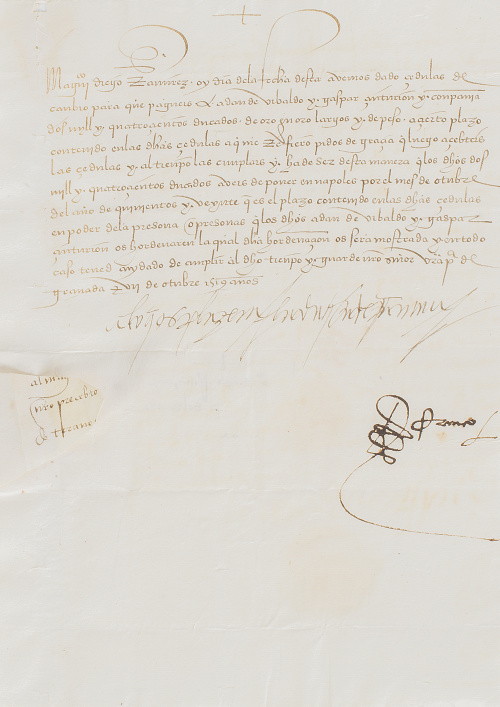 S.
Magco diego Ramirez. oy dia dela fecha desta avemos dado çedulas de
canbio para que pagueis A adan de vibaldo y. gaspar çinturion y. conpania
dos mill y. quatroçientos ducados. de oro en oro largos y de peso. a çierto plazo
contenido enlas dhas çedulas a q me Refiero pidos de graçia q luego açebteis
las çedulas y. al tienpo las cunplais y. ha de ser desta manera q los dhos dos
mill y. quatroçientos ducados aveis de poner en napoles por el mes de otubre
del año de quinientos y. veynte q es el plazo contenido enlas dhas çedulas
en poder dela presona o presonas q los dhos adan de vibaldo y. gaspar
çinturion os hordenaren la qual dha hordenaçion os sera mostrada y en todo
caso tened cuydado de cunplir al dho tienpo y guarde nro señor vra psa de
granada XVII de otubre 1519 años
al
nro
de
franco